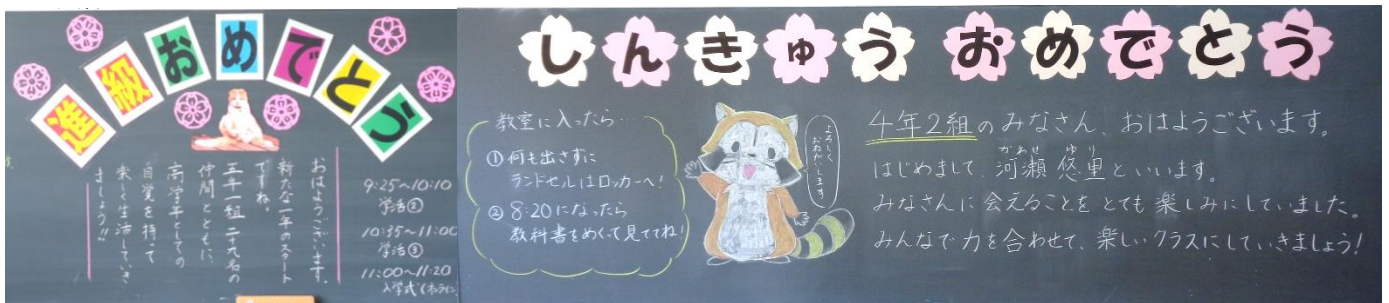 進級おめでとう
おはようございます。
新たな一年のスタート
ですね。
五年一組二十九名の
仲間とともに、
高学年としての
自覚を持って
楽しく生活していき
ましょう!!
9:25~10:10
学活②
10:35~11:00
学活③
11:00~11:20
入学式(オンライン
しんきゅう おめでとう
教室に入ったら…
①何も出さずに
ランドセルはロッカーへ!
②8:20になったら
教科書をめくって見ててね!
よろしく
おねがいします
4年2組のみなさん、おはようございます。
かわせ ゆり
はじめまして、河瀬 悠里といいます。
みなさんに会えることをとても楽しみにしていました。
みんなで力を合わせて、楽しいクラスにしていきましょう!